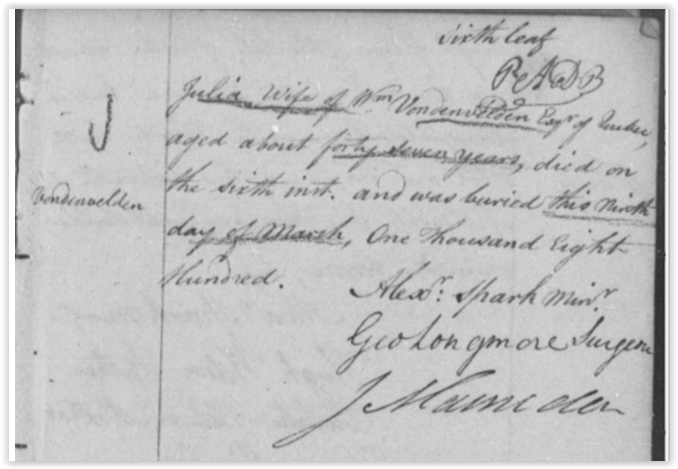 Sixth leaf
P. A. D B
Julia Wife of Wm Vondenvelden Esqr of Quebec,
aged about forty seven years, died on
the sixth inst. and was buried this Ninth
day of March, One Thousand Eight
Hundred.
Vondenvelden
Alexr: Spark Minr.
Geo Longmore Surgeon
J